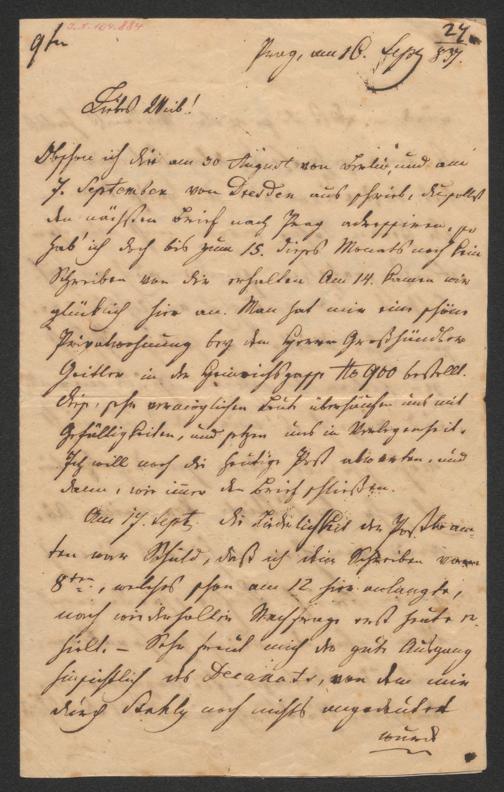 I.N. 104.884
9ter
24
837.
Prag, am 16. Sept
Liebes Weib!
Obschon ich dir am 30 August von Berlin, und am
7. September von Dresden aus schrieb, du sollst
den nächsten Brief nach Prag adressiren, so
hab' ich doch bis zum 15. dieses Monats noch kein
Schreiben von dir erhalten. Am 14. kamen wir
glücklich hier an. Man hat mir eine schöne
Privatwohnung bey dem Herrn Großhändler
Geitler in der Heinrichsgasse No 900 bestellt.
Diese, sehr vermöglichen Leute überhäufen uns mit
Gefälligkeiten, und setzen uns in Verlegenheit.
Ich will noch die heutige Post abwarten, und
dann, wie immer den Brief schließen.
Am 17. Sept. Die Liederlichkeit der Postbeam-
ten war Schuld, daß ich dein Schreiben vom
8ten, welches schon am 12 hier anlangte,
nach wiederholter Nachfrage erst heute er-
hielt. – Sehr freut mich der gute Ausgang
hinsichtlich des Decanats, von dem mir
durch noch nichts angedeutet
wurde